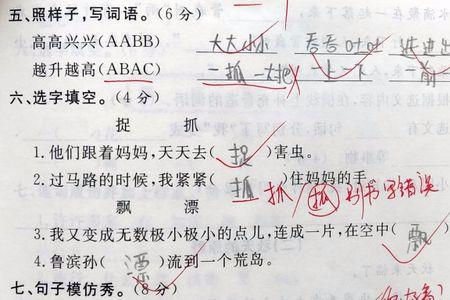 五、照样子,写词语。(6分)
高高兴兴(AABB) 大大小小 吞吞吐吐 进进出出
越升越高(ABAC) 一抓一大把 上一下 一前
六、选字填空。(4分)
捉 抓
1.他们跟着妈妈,天天去( 捉 )害虫。
2.过马路的时候,我紧紧( 抓 )住妈妈的手。 抓 抓 书写错误
飘 漂
3.我又变成无数极小极小的点儿,连成一片,在空中( 飘
4.鲁滨孙( 漂 )流到一个荒岛。
七、句子模仿秀。(8分)